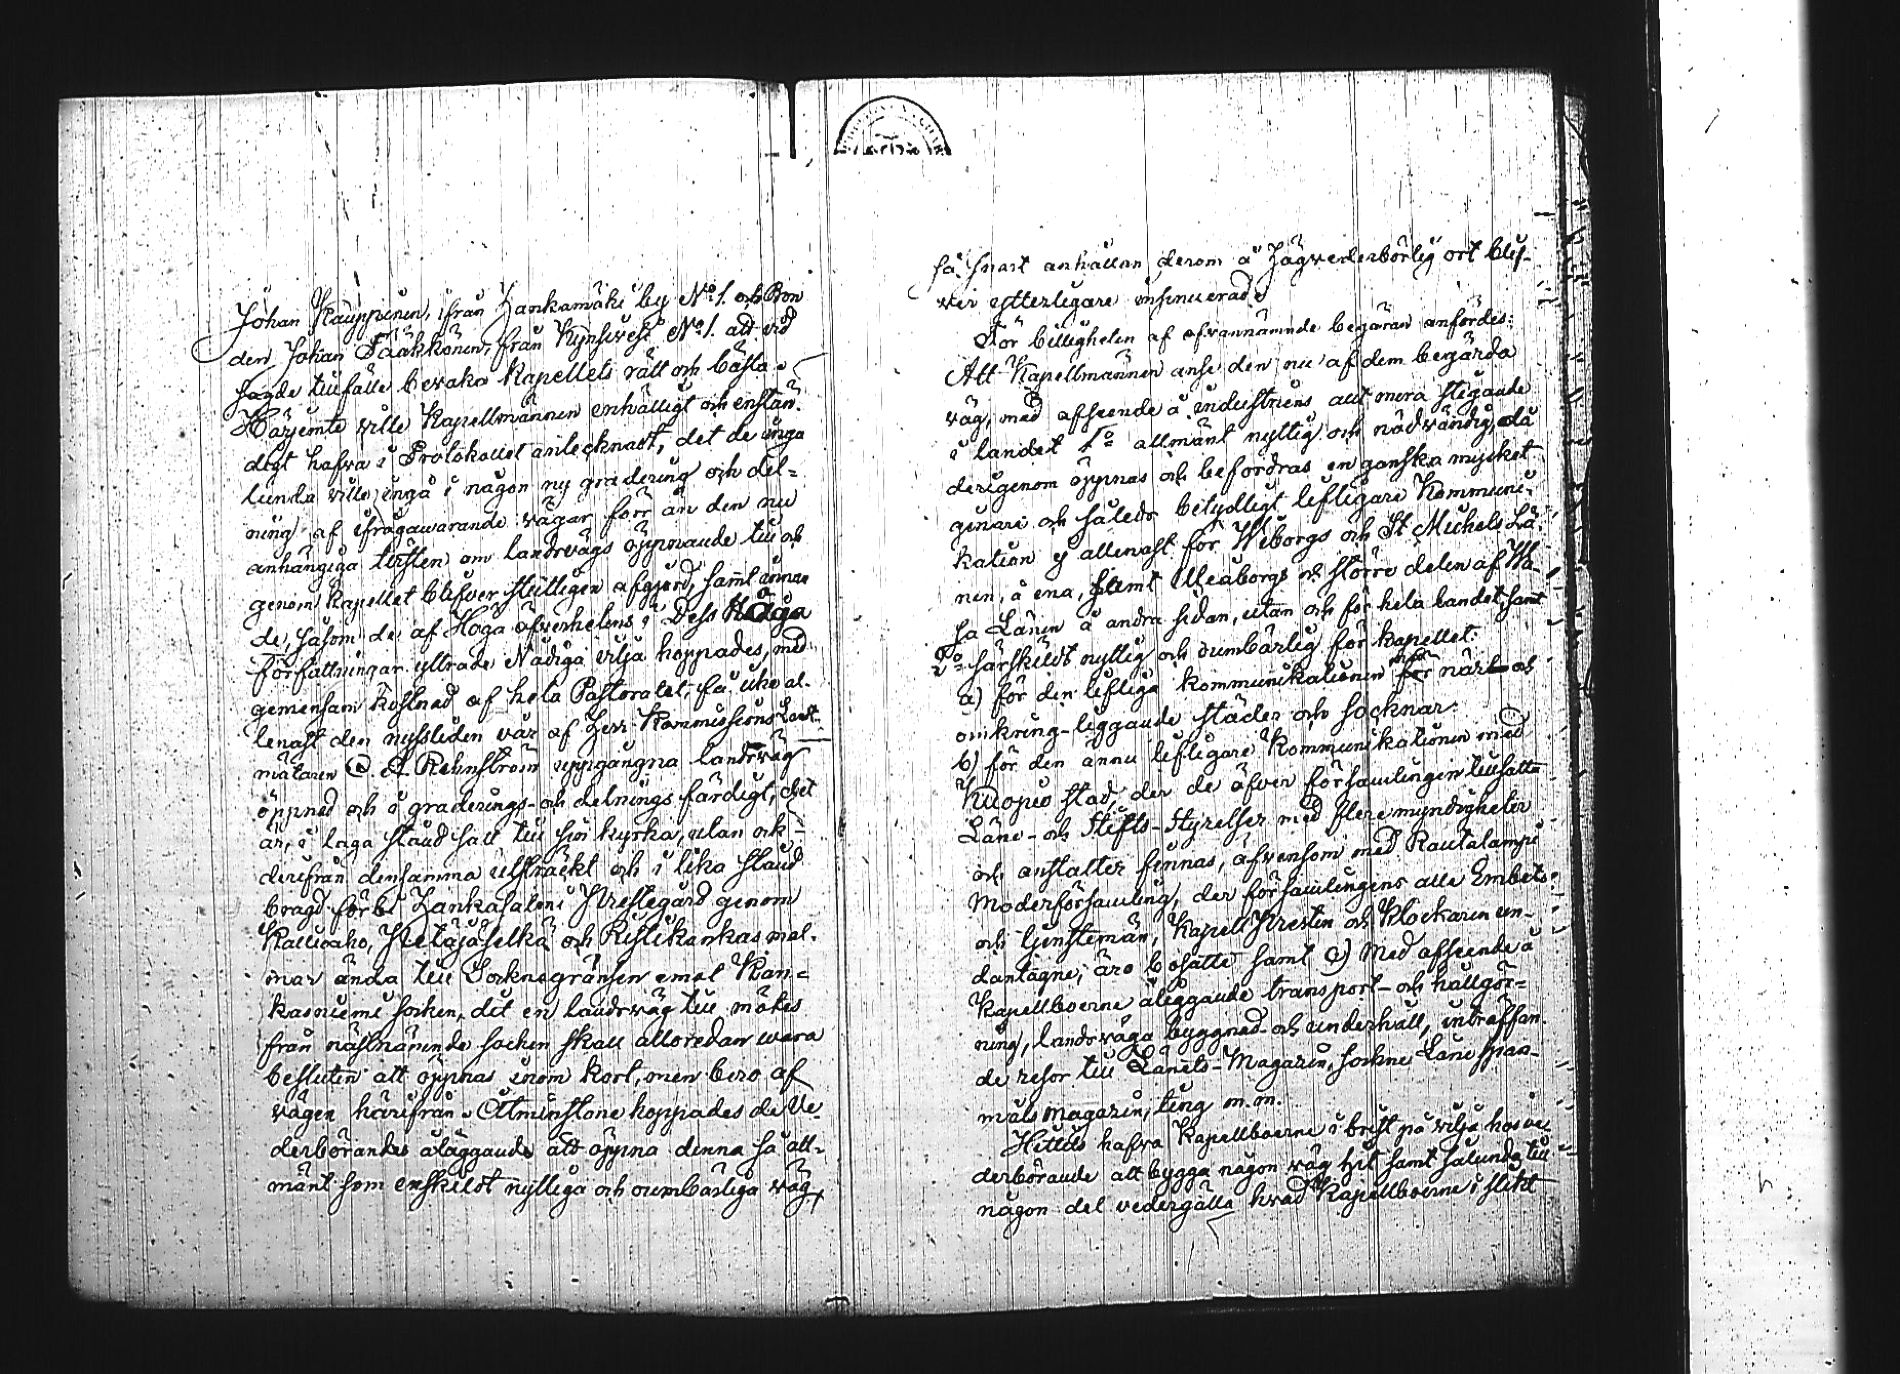 Johan Kauppinen, ifrån Hankamäki by No 1. och Bon
den Johan Pääkkönen, från Kynsivesi No 1. att vid
sagde tillfälle bevaka Kapellets rätt och bästa.
Härjemte ville Kapellmännen enhälligt och enstän-
digt hafva i Protokollet antecknadt, det de inga
lunda ville ingå i någon ny gradering och del-
ning af ifrågawarande vägar förr än den nu
anhängiga tvisten om landsvägs öppnande till och
genom kapellet blifver slutligen afgjord, samt innan
de, såsom de af Höga öfverhetens i Dess Nådiga
författningar yttrade Nådiga vilja hoppades, med
gemensam kostnad af hela Pastoratet, få icke al-
lenast den nyssliden vår af Herr Kommissions Landt-
mätaren C. A. Rehnström uppgångna landsväg
öppnad och i graderings- och delnings färdigt, det
är, i laga stånd satt till sin kyrka, utan ock
derifrån densamma utsträckt och i lika stånd
bragd förbi Hankasalmi Prestegård genom
Kallioaho, Pietäjäselkä och Ristikankas mal-
mar ända till Socknegränsen emot Kan-
kasniemi socken, dit en landsväg till mötes
från nästnämnde socken skall alloredan wara
besluten att öppnas inom kort, men bero af
vägen härifrån. Åtminstone hoppades de Ve-
derbörandes åläggande att öppna denna så all-
mänt som enskildt nyttiga och oumbärliga väg,
så snart anhållan derom å Högvederbörlig ort blif-
ver ytterligare insinuerad.
För billigheten af ofvannämnde begäran anfördes:
Att Kapellmännen anse den nu af dem begärda
väg, med afseende å industriens allt mera stigande
i landet 1o allmänt nyttig och nödvändig, då
derigenom öppnas och befordras en ganska mycket
ginare och således betydligt lifligare Kommuni-
kation ej allenast för Wiborgs och St Michels Lä-
nen, å ena, samt Uleåborgs och större delen af Wa-
sa Länen å andra sidan, utan ock för hela landet, samt
2o särskildt nyttig och oumbärlig för kapellet:
a) för den lifliga kommunikationen med när och
omkring-liggande städer och socknar.
b) för den ännu lifligare Kommunikationen med
Kuopio stad, der de öfver församlingen tillsatta
Läne- och Stifts-Styrelser med flere myndigheter
och anstalter finnas, äfvensom med Rautalampi
Moderförsamling, der församlingens alla Embets-
och tjenstemän, Kapell Presten och Klockaren un-
dantagne, äro bosatte samt c) Med afseende å
Kapellboerne åliggande transport- och hållgör-
ning, landsväga byggnad- och underhåll, inträffan-
de resor till Länets-Magazin, sockne Låne span-
måls magazin, ting m.m.
Hittills hafva Kapellboerne i brist på vilja hos ve-
derbörande att bygga någon väg hit samt sålunda till
någon del vedergälla hvad Kapellboerne i slikt